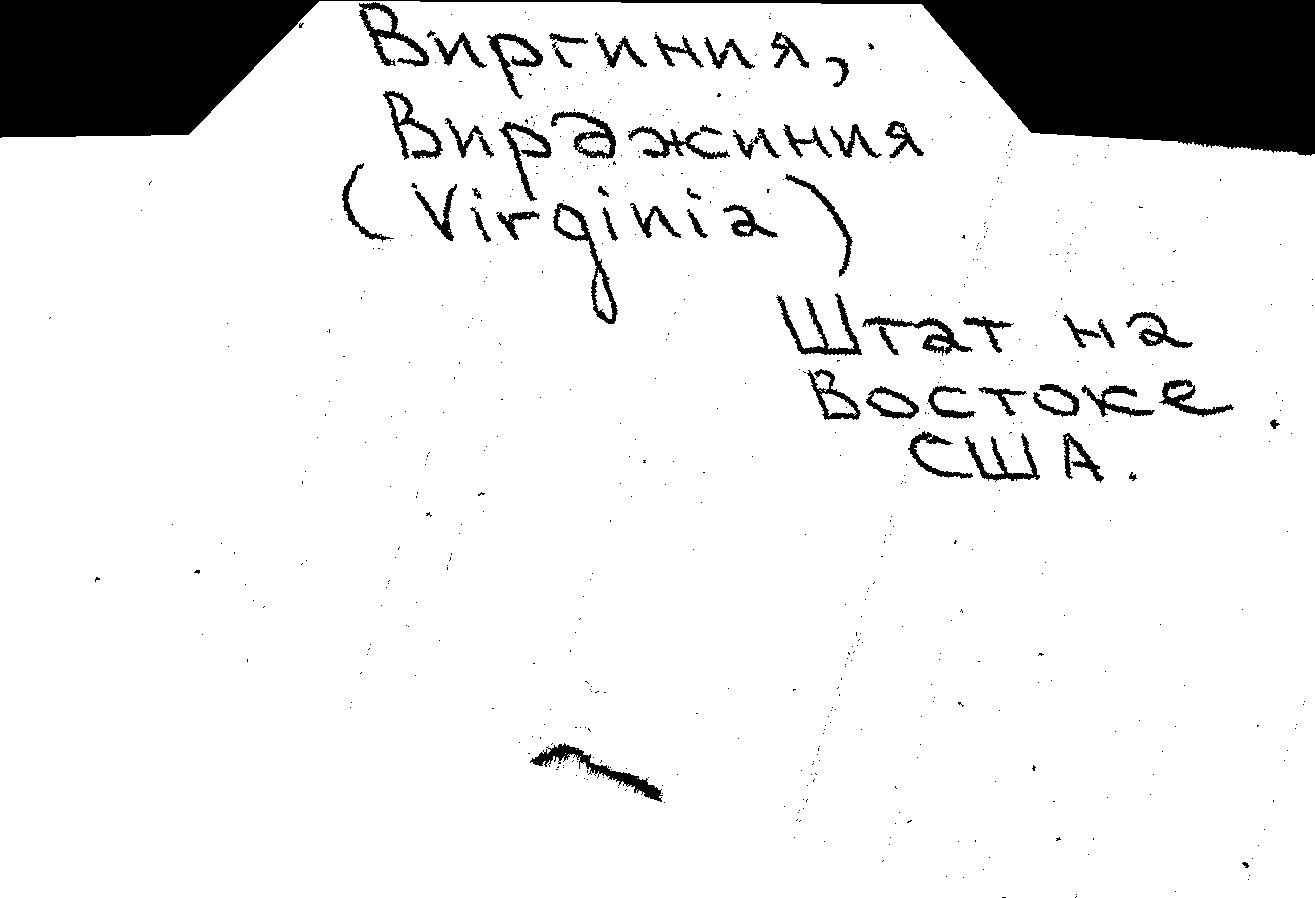 Виргиния,
Вирджиния
(Virginia)
Штат на
Востоке
США.